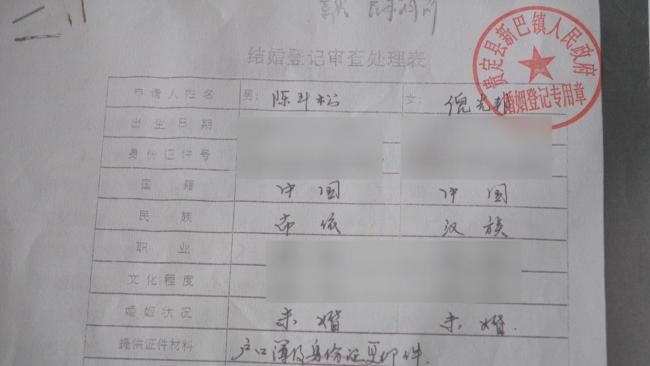 结婚登记审查处理表
贵定县新巴镇人民政府
婚姻登记专用章
申请人姓名 男: 陈斗松 女: 倪光
出生日期
身份证件号
国籍 中国 中国
民族 布依 汉族
职业
文化程度
婚姻状况 未婚 未婚.
提供证件材料 户口簿及身份证复印件.